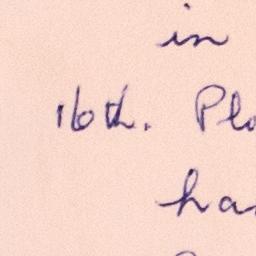 in
16th. Pl
ha